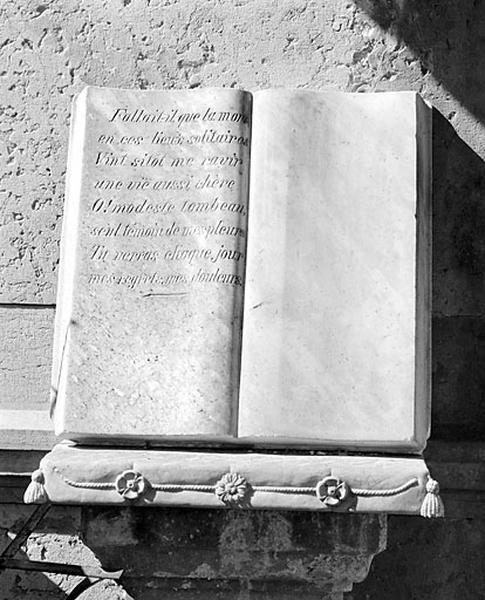 Fallait-il que la mort
en ces lieux solitaires
Vint sitôt me ravir
une vie aussi chère
O! modeste tombeau,
seul témoin de mes pleurs
Tu verras chaque jour
mes regrets, mes douleurs.